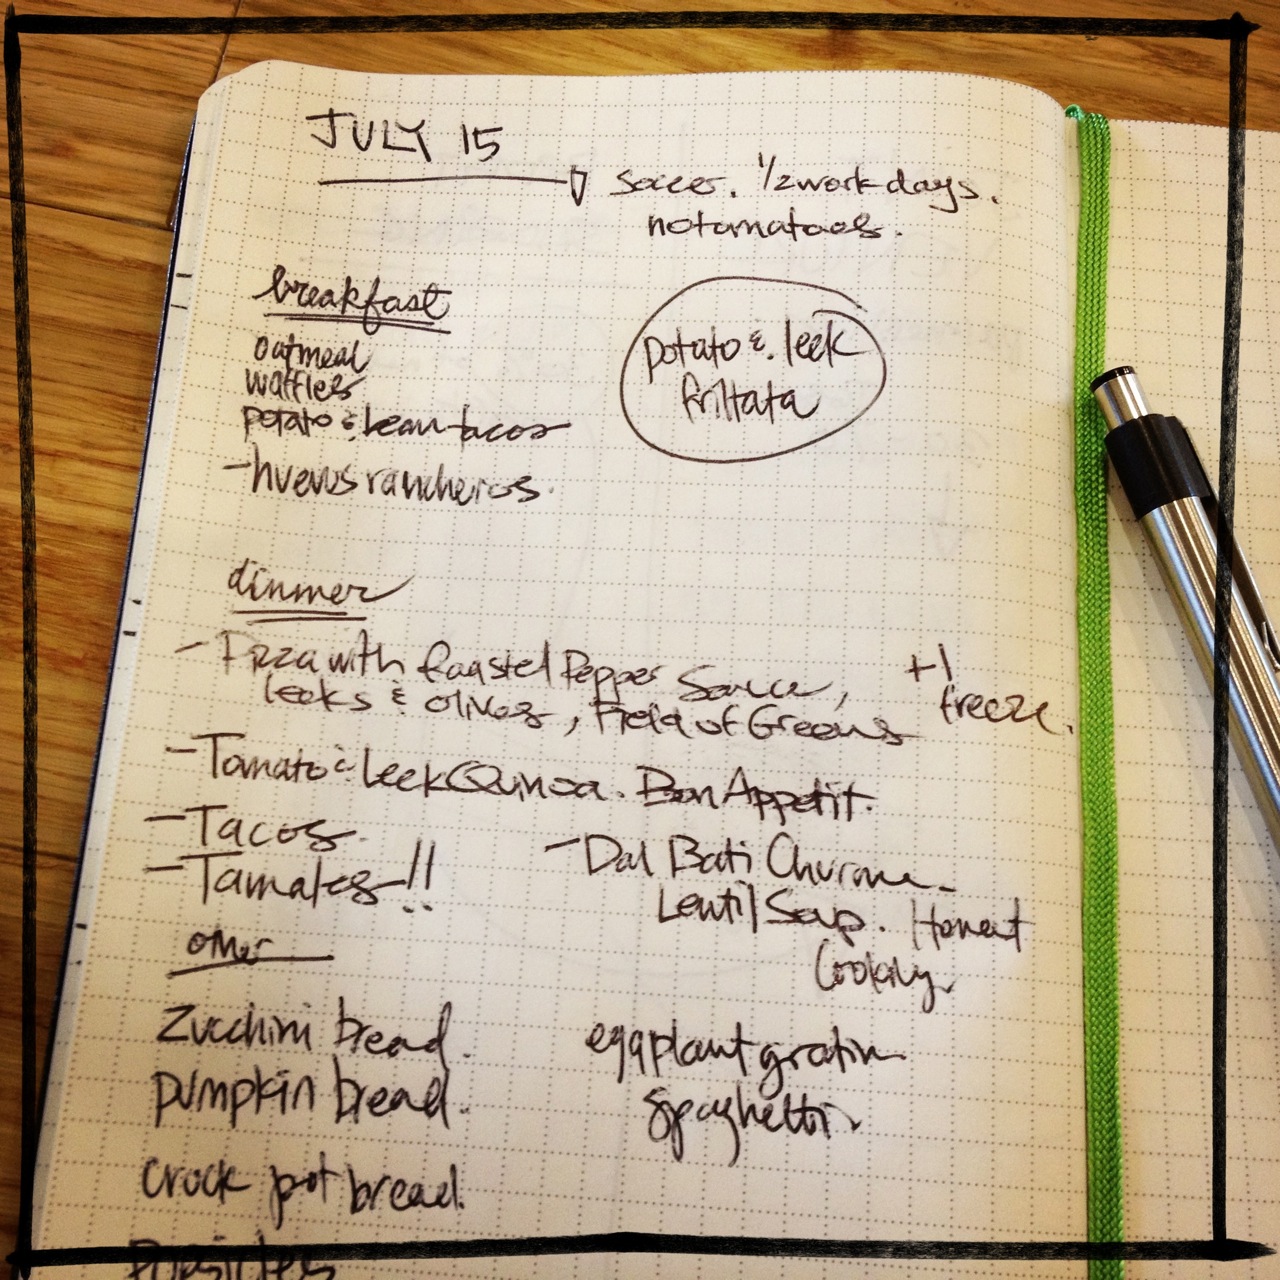 JULY 15
soccer. 1/2 work days.
no tomatoes.
breakfast
oatmeal
waffles
potato & bean tacos
- huevos rancheros.
potato & leek
frittata
dinner
- Pizza with Roasted Pepper Sauce,
leeks & olives, Field of Greens
+1
freeze.
- Tomato & Leek Quinoa. Bon Appetit.
- Tacos.
- Tamales!!
- Dal Bati Churma -
Lentil Soup. Honest
Cooking
other
Zucchini bread.
pumpkin bread.
crock pot bread.
eggplant gratin
spaghetti.
Popsicles